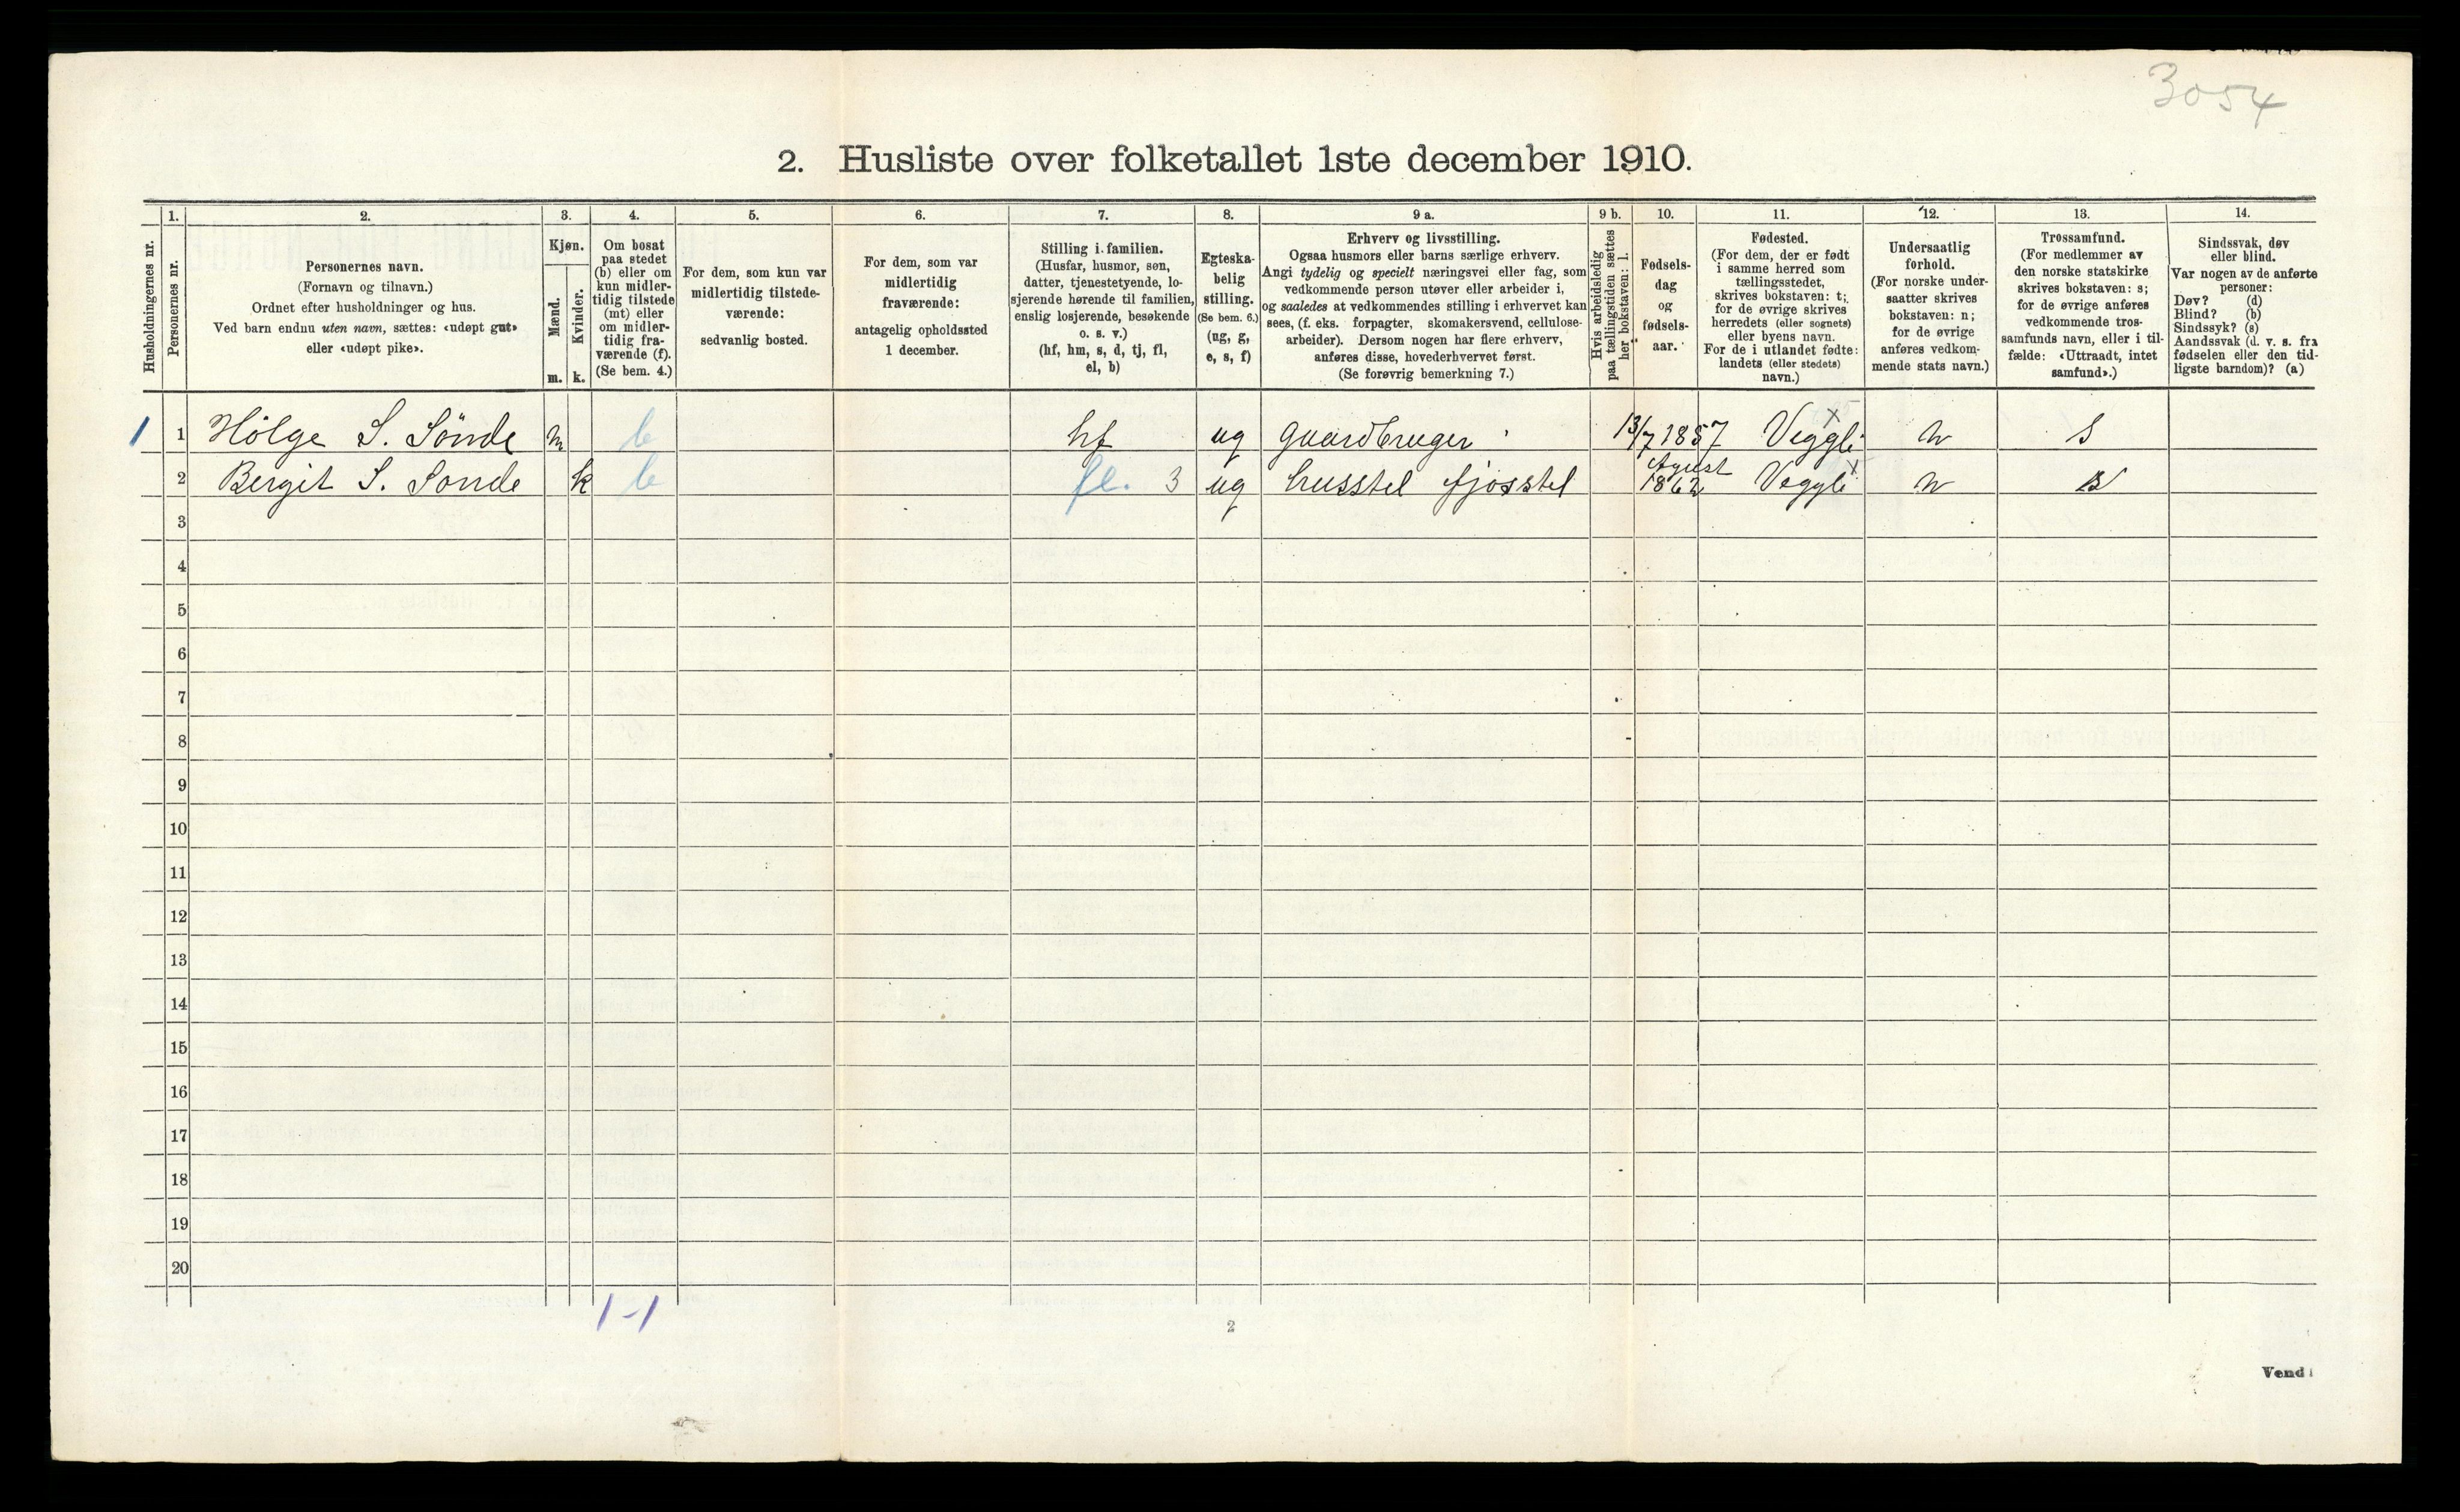 3054
2. Husliste over folketallet 1ste december 1910.
Husholdningernes nr.
1.
Personernes nr.
2.
Personernes navn.
(Fornavn og tilnavn.)
Ordnet efter husholdninger og hus.
Ved barn endnu uten navn, sættes: «udøpt gut»
eller «udøpt pike».
3.
Kjøn.
Mænd.
m.
Kvinder.
k.
4.
Om bosat
paa stedet
(b) eller om
kun midler-
tidig tilstede
(mt) eller
om midler-
tidig fra-
værende (f).
(Se bem. 4.)
5.
For dem, som kun var
midlertidig tilstede-
værende:
sedvanlig bosted.
6.
For dem, som var
midlertidig
fraværende:
antagelig opholdssted
1 december.
7.
Stilling i familien.
(Husfar, husmor, søn,
datter, tjenestetyende, lo-
sjerende hørende til familien,
enslig losjerende, besøkende
o. s. v.)
(hf, hm, s, d, tj, fl,
el, b)
8.
Egteska-
belig
stilling.
(Se bem. 6.)
(ug, g,
e, s, f)
9 a.
Erhverv og livsstilling.
Ogsaa husmors eller barns særlige erhverv.
Angi tydelig og specielt næringsvei eller fag, som
vedkommende person utøver eller arbeider i,
og saaledes at vedkommendes stilling i erhvervet kan
sees, (f. eks. forpagter, skomakersvend, cellulose-
arbeider). Dersom nogen har flere erhverv,
anføres disse, hovederhvervet først.
(Se forøvrig bemerkning 7.)
9 b.
Hvis arbeidsledig
paa tællingstiden sættes
her bokstaven: l.
10.
Fødsels-
dag
og
fødsels-
aar.
11.
Fødested.
(For dem, der er født
i samme herred som
tællingsstedet,
skrives bokstaven: t;
for de øvrige skrives
herredets (eller sognets)
eller byens navn.
For de i utlandet fødte:
landets (eller stedets)
navn.)
12.
Undersaatlig
forhold.
(For norske under-
saatter skrives
bokstaven: n;
for de øvrige
anføres vedkom-
mende stats navn.)
13.
Trossamfund.
(For medlemmer av
den norske statskirke
skrives bokstaven: s;
for de øvrige anføres
vedkommende tros-
samfunds navn, eller i til-
fælde: «Uttraadt, intet
samfund».)
14.
Sindssvak, døv
eller blind.
Var nogen av de anførte
personer:
Døv? (d)
Blind? (b)
Sindssyk? (s)
Aandssvak (d. v. s. fra
fødselen eller den tid-
ligste barndom)? (a)
1 1 Hölge S. Sönde m b hf ug gaardbruger 13/7 1857 Veggli x n S
2 Bergit S. Sonde k b fl. 3 ug husstel fjosstel Agust 1862 Veggli x n S
3
4
5
6
7
8
9
10
11
12
13
14
15
16
17
18
19
20
1-1
2
Vend